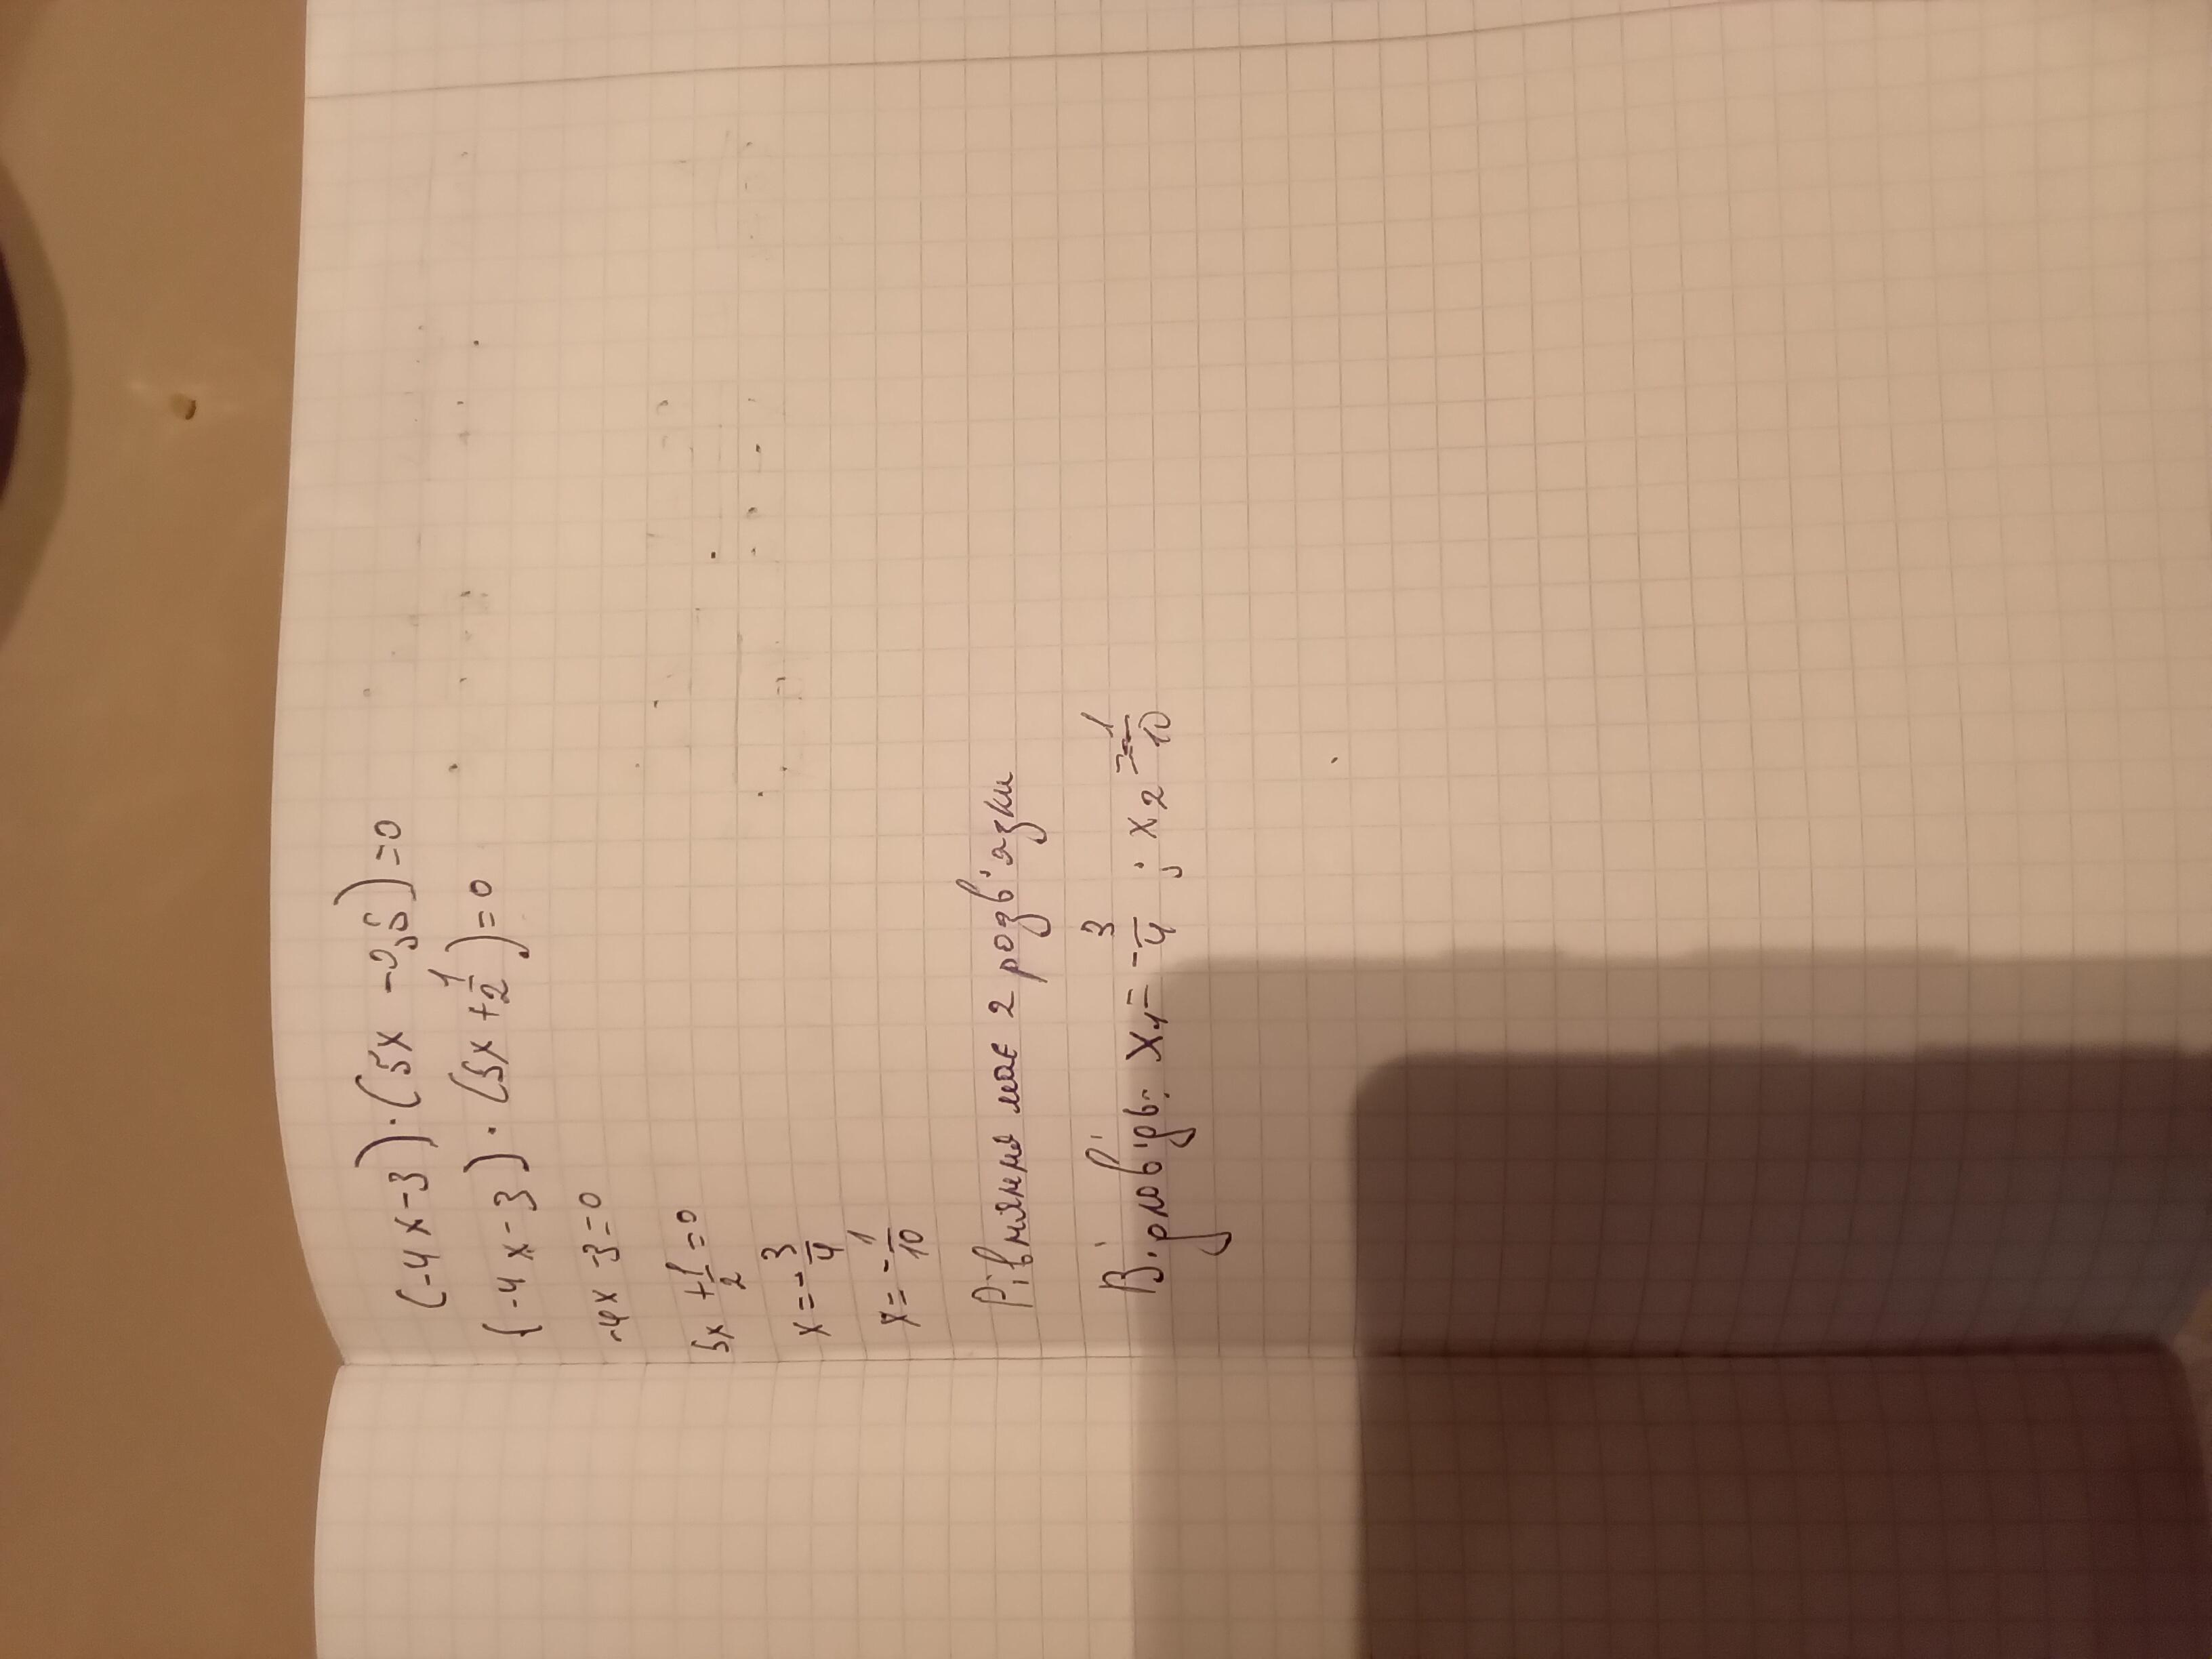 (-4x-3)·(5x-0,5)=0
(-4x-3)·(5x+1/2)=0
-4x-3=0
5x+1/2=0
x=-3/4
x=-1/10
Рівняння має 2 розв'язки
Відповідь: x1=-3/4; x2=-1/10